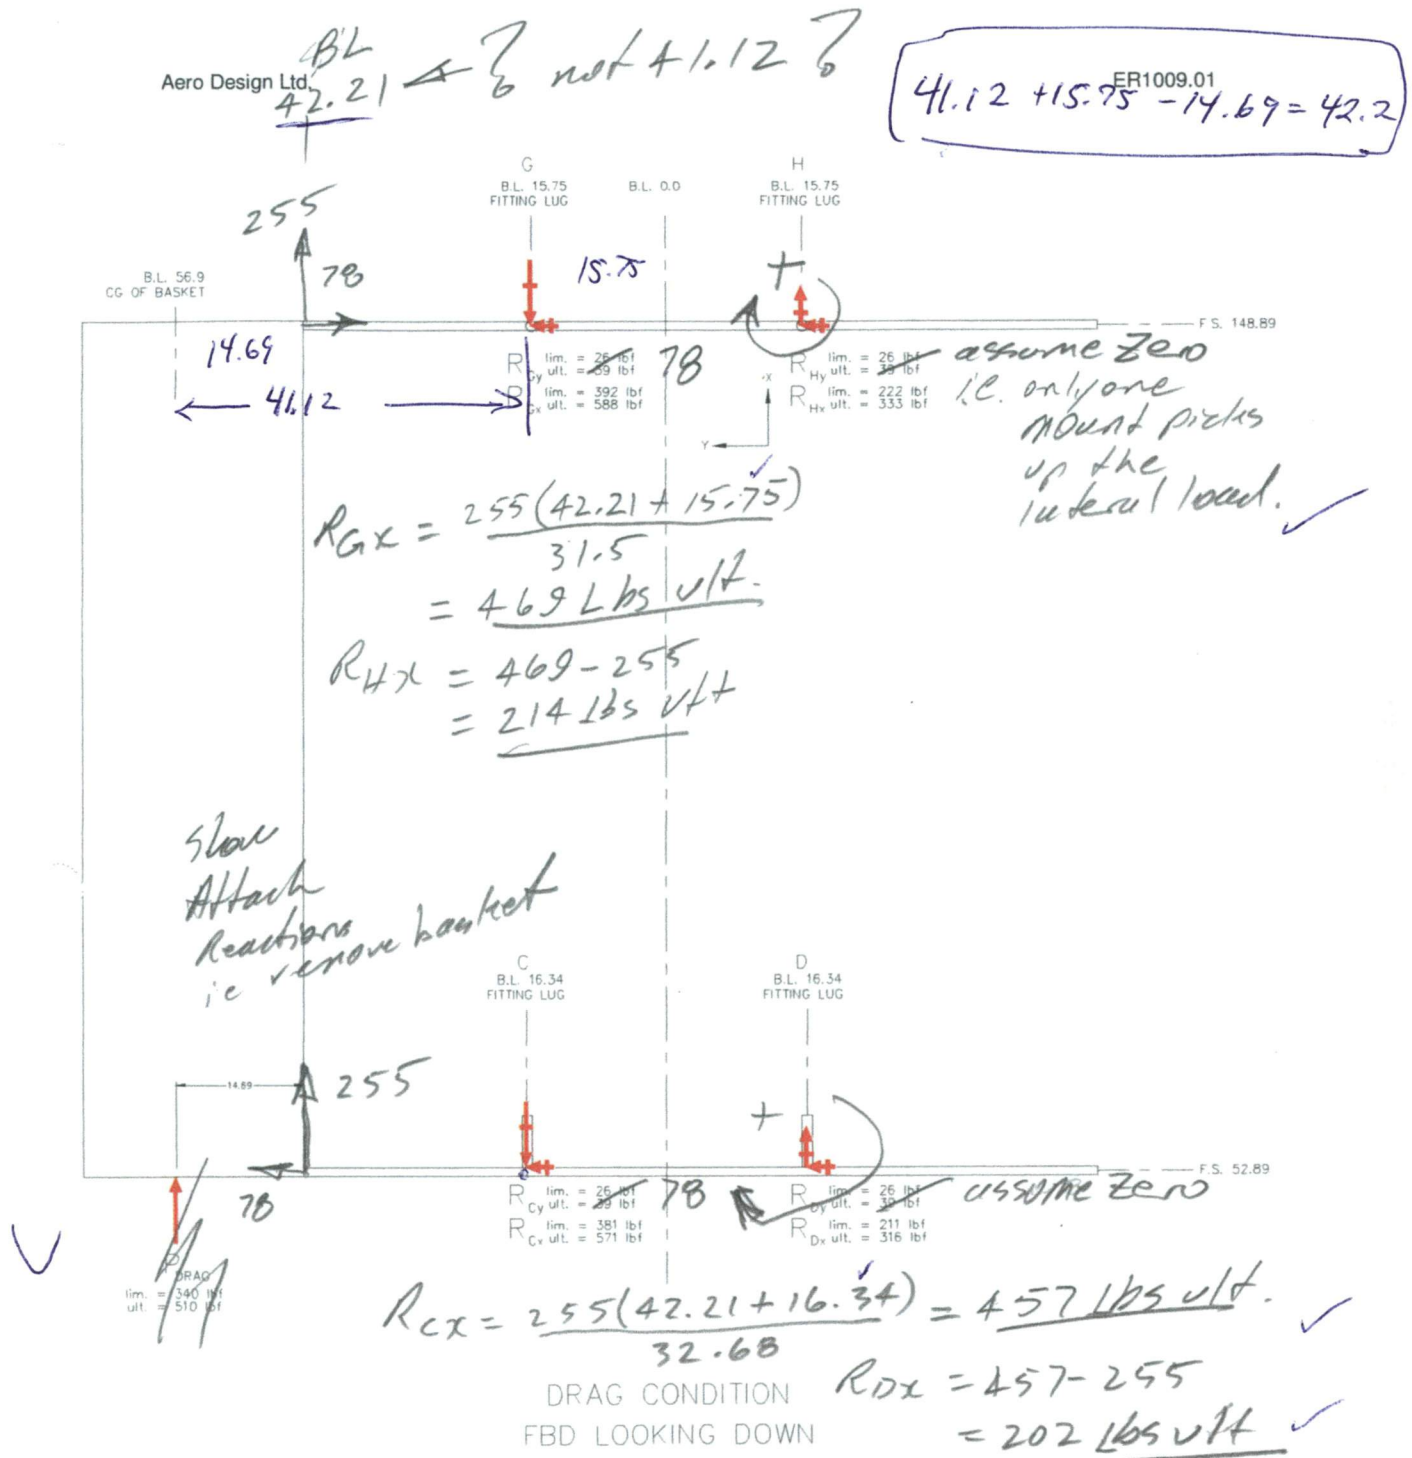 BL
Aero Design Ltd.
42.21 ? not 41.12 ?
ER1009.01
41.12 + 15.75 - 14.69 = 42.2
G
B.L. 15.75
FITTING LUG
B.L. 0.0
H
B.L. 15.75
FITTING LUG
255
78
15.75
+
B.L. 56.9
CG OF BASKET
F.S. 148.89
14.69
41.12
R Gy lim. = 26 lbf
ult. = 39 lbf
78
R Gx lim. = 392 lbf
ult. = 588 lbf
R Hy lim. = 26 lbf
ult. = 39 lbf
R Hx lim. = 222 lbf
ult. = 333 lbf
assume Zero
i.e. only one
mount picks
up the
lateral load.
X
Y
RGx = 255(42.21 + 15.75)
31.5
= 469 Lbs ult.
RHx = 469 - 255
= 214 lbs ult
Show
Attach
Reactions
ie remove basket
C
B.L. 16.34
FITTING LUG
D
B.L. 16.34
FITTING LUG
14.69
255
+
F.S. 52.89
78
R Cy lim. = 26 lbf
ult. = 39 lbf
78
R Cx lim. = 381 lbf
ult. = 571 lbf
R Dy lim. = 26 lbf
ult. = 39 lbf
R Dx lim. = 211 lbf
ult. = 316 lbf
assume Zero
P DRAG
lim. = 340 lbf
ult. = 510 lbf
RCx = 255(42.21 + 16.34) = 457 Lbs ult.
32.68
DRAG CONDITION
FBD LOOKING DOWN
RDx = 457 - 255
= 202 Lbs ult